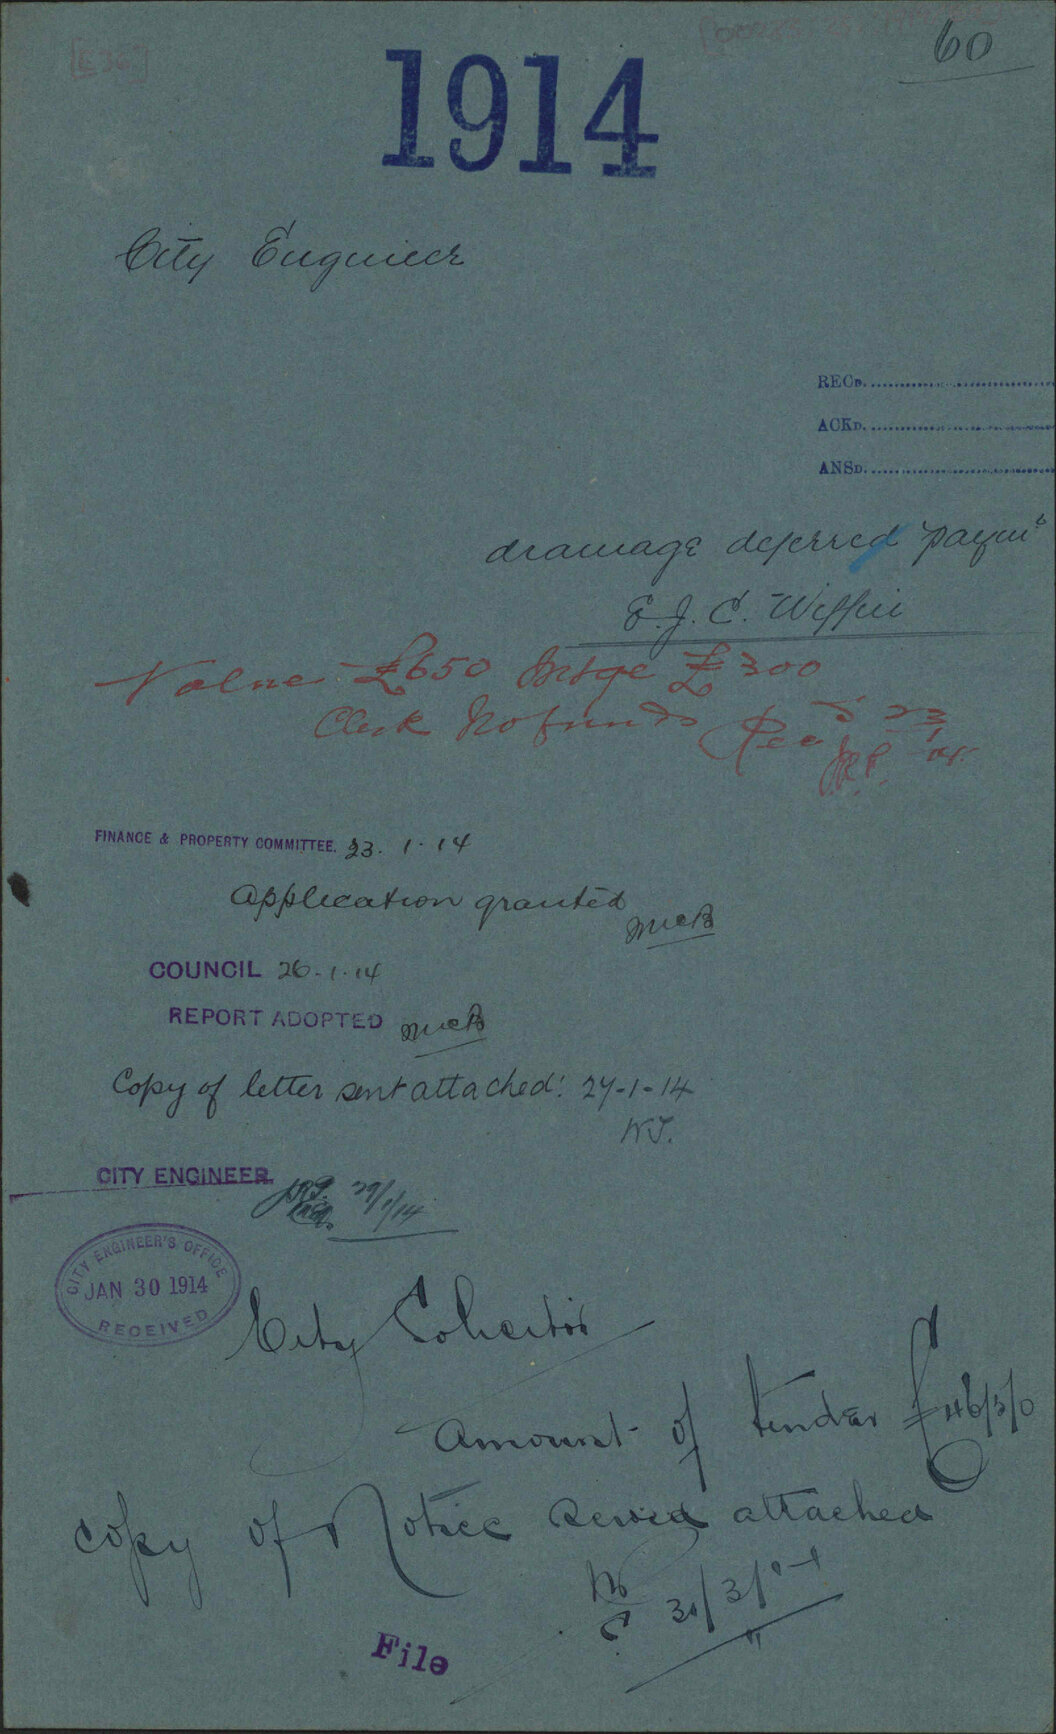 60
1914
City Engineer
RECD.
ACKD.
ANSD.
drainage deferred paymt
E. J. C. Wiffin
Value £650 Mtge £300
Clerk No funds
FINANCE & PROPERTY COMMITTEE. 23. 1. 14
Application granted
COUNCIL 26-1-14
REPORT ADOPTED
Copy of letter sent attached: 27-1-14
CITY ENGINEER 29/1/14
CITY ENGINEER'S OFFICE
JAN 30 1914
RECEIVED
City Solicitor
Amount of tender £46/5/0
copy of Notice served attached
File